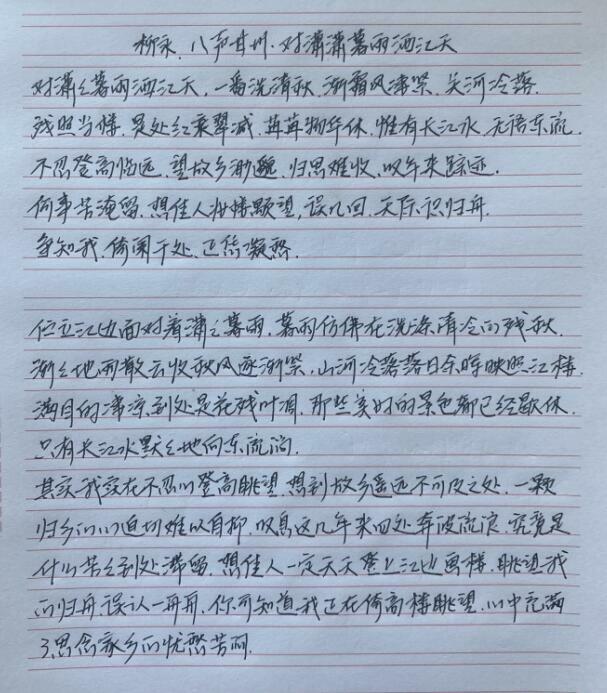 柳永.八声甘州.对潇潇暮雨洒江天
对潇々暮雨洒江天,一番洗清秋,渐霜风凄紧,关河冷落.
残照当楼,是处红衰翠减,苒苒物华休.惟有长江水,无语东流.
不忍登高临远,望故乡渺邈,归思难收,叹年来踪迹.
何事苦淹留,想佳人妆楼颙望,误几回.天际识归舟.
争知我,倚阑干处,正恁凝愁.
伫立江边面对着潇々暮雨,暮雨仿佛在洗涤清冷的残秋.
渐々地雨散云收秋风逐渐紧,山河冷落落日余晖映照江楼.
满目的凄凉到处是花残叶凋,那些美好的景色都已经歇休.
只有长江水默々地向东流淌.
其实我实在不忍心登高眺望,想到故乡遥远不可及之处,一颗
归乡的心迫切难以自抑,叹息这几年来四处奔波流浪,究竟是
什么苦々到处滞留,想佳人一定天天登上江边画楼,眺望我
的归舟,误认一舟舟,你可知道我正在倚高楼眺望,心中充满
了思念家乡的忧愁苦闷.